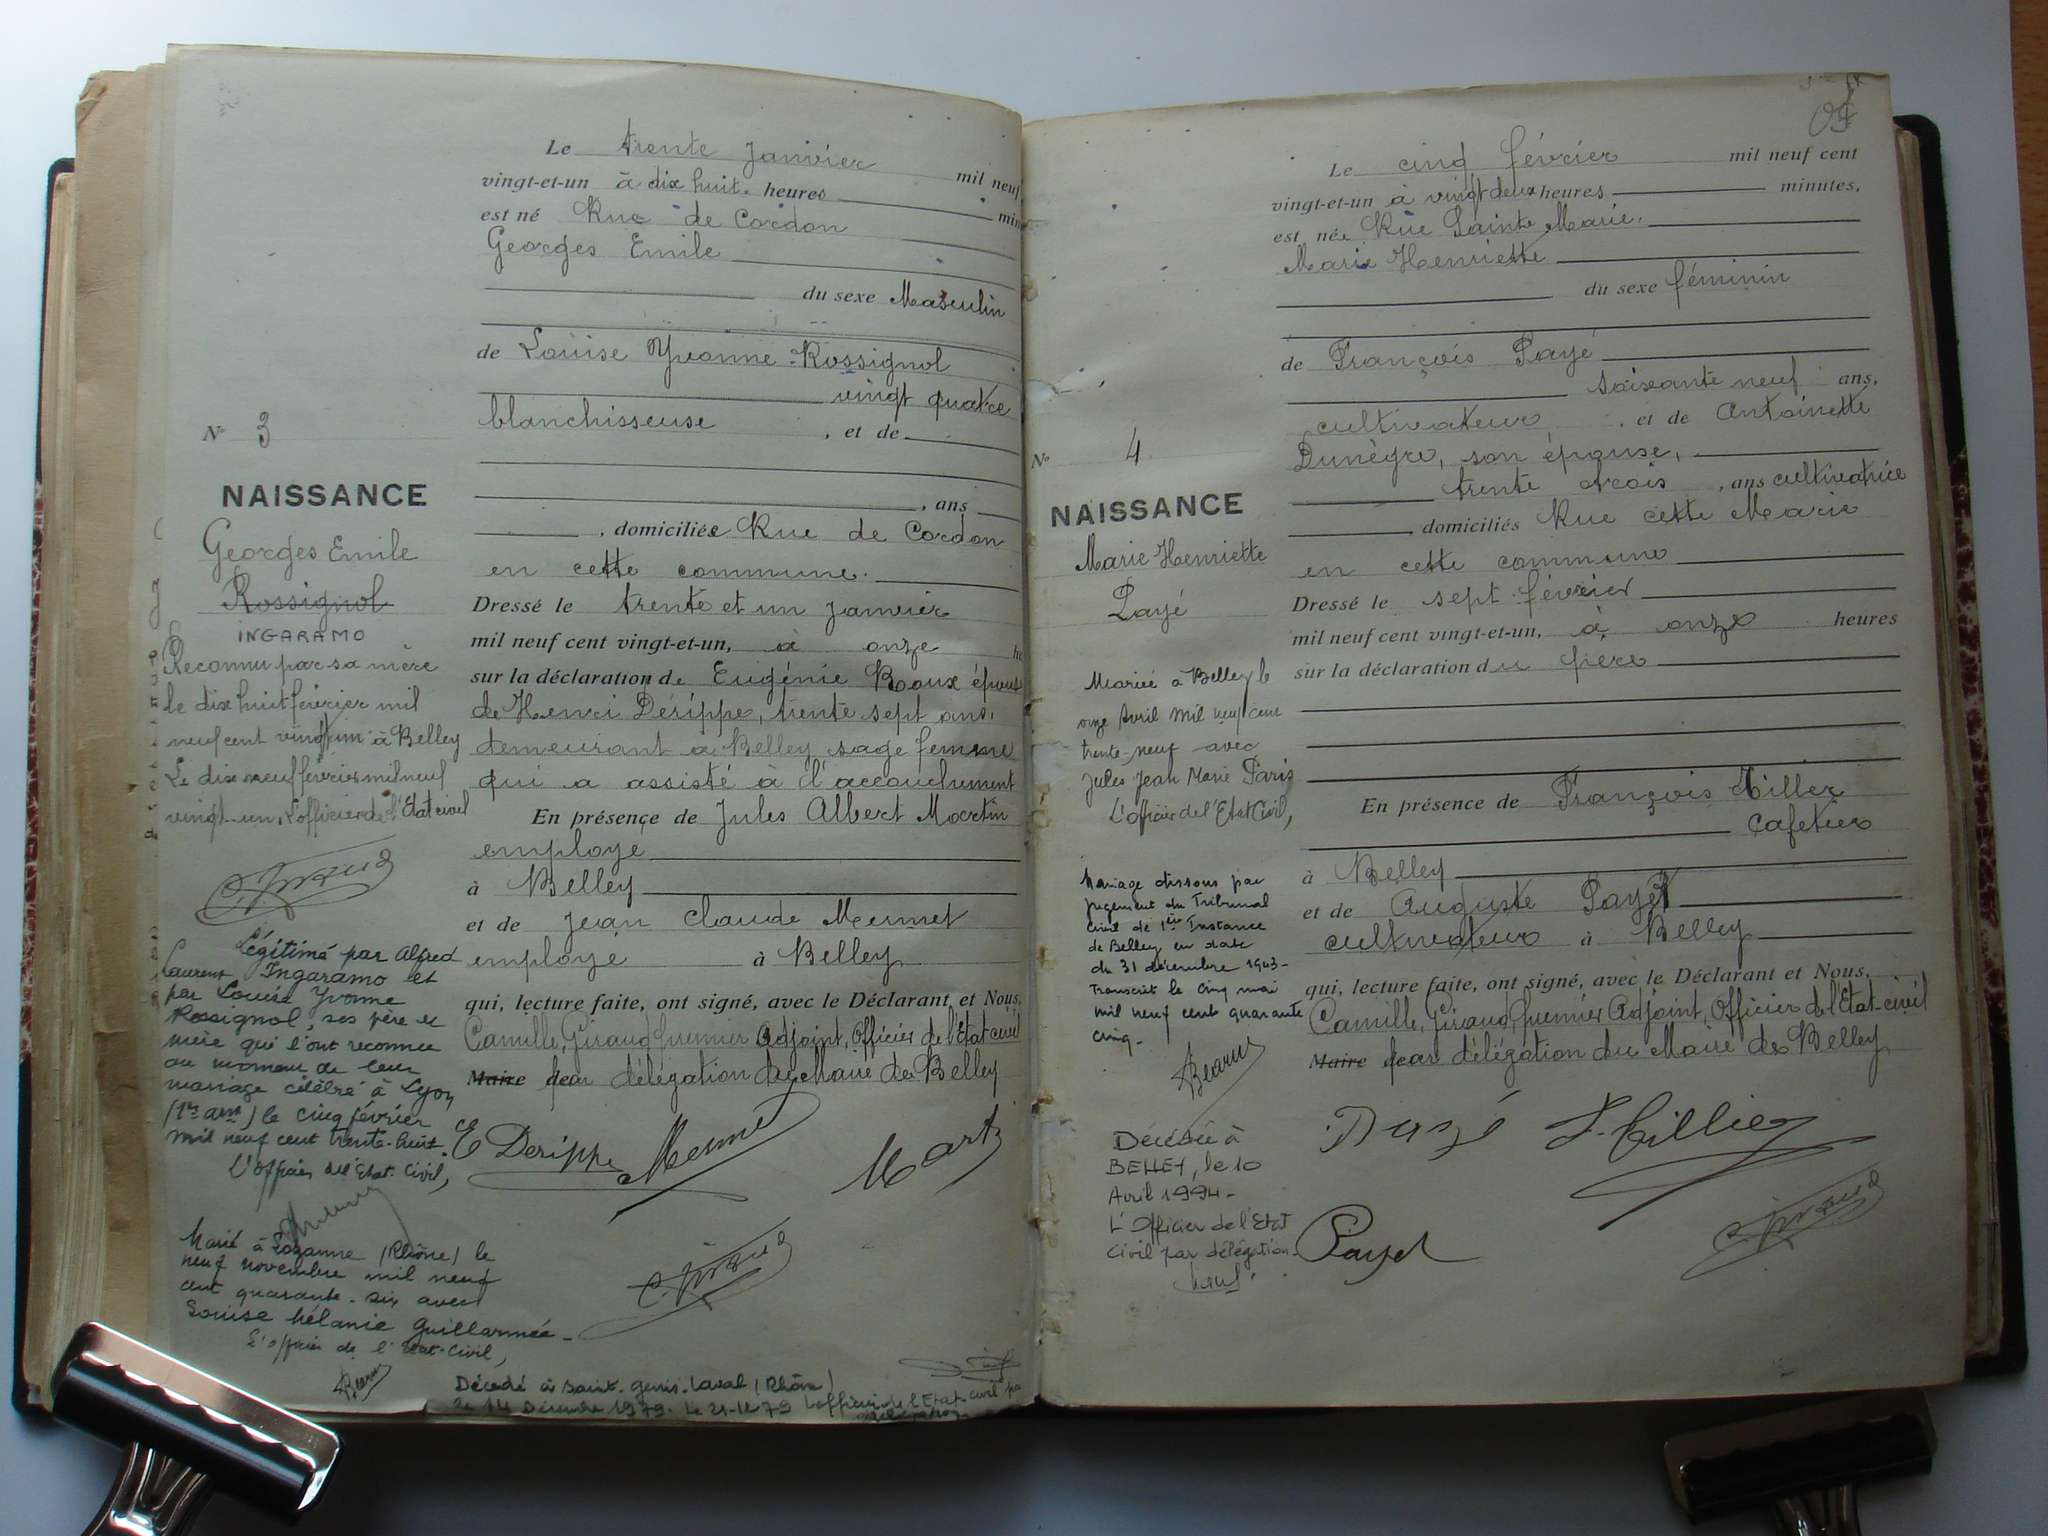 Le trente Janvier mil neuf
vingt-et-un à dix huit heures min
est né Rue de Cordon
Georges Emile
du sexe Masculin
de Louise Yvonne Rossignol
vingt quatre
blanchisseuse, et de
, ans
, domiciliée Rue de Cordon
en cette commune.
Dressé le trente et un janvier
mil neuf cent vingt-et-un, à onze he
sur la déclaration de Eugénie Roux épouse
de Henri Dérippe, trente sept ans,
demeurant à Belley sage femme
qui a assisté à l'accouchement
En présence de Jules Albert Martin
employé
à Belley
et de Jean Claude Mermet
employé à Belley
qui, lecture faite, ont signé, avec le Déclarant et Nous,
Camille Giraud premier Adjoint, Officier de l'Etat civil
Maire par délégation du Maire de Belley
E Derippe Mermet Martin
C. Giraud
N° 3
NAISSANCE
Georges Emile
Rossignol
INGARAMO
Reconnu par sa mère
le dix huit février mil
neuf cent vingt un à Belley
Le dix neuf février mil neuf
vingt-un, L'officier de l'Etat civil
C. Giraud
Légitimé par Alfred
Laurent Ingaramo et
par Louise Yvonne
Rossignol, ses père et
mère qui l'ont reconnu
au moment de leur
mariage célébré à Lyon
(1er arrt) le cinq février
mil neuf cent trente-huit.
L'officier de l'Etat-Civil,
Marié à Lozanne (Rhône) le
neuf novembre mil neuf
cent quarante-six avec
Louise Mélanie Guillarmée-
L'officier de l'Etat-Civil,
Décédé à Saint-Genis-Laval (Rhône)
le 14 Décembre 1979. Le 21-12-79 L'officier de l'Etat-civil par
délégation
Le cinq février mil neuf cent
vingt-et-un à vingt deux heures minutes,
est née Rue Sainte Marie.
Marie Henriette
du sexe féminin
de François Payé
soixante neuf ans,
cultivateur, et de Antoinette
Dunègre, son épouse,
trente trois, ans cultivatrice
domiciliés Rue cette Marie
en cette commune
Dressé le sept février
mil neuf cent vingt-et-un, à onze heures
sur la déclaration du père
En présence de François Tillier
Cafetier
à Belley
et de Auguste Payet
cultivateur à Belley
qui, lecture faite, ont signé, avec le Déclarant et Nous,
Camille Giraud, premier Adjoint, Officier de l'Etat-civil
Maire par délégation du Maire de Belley
F. Tillier
Payet
C. Giraud
N° 4
NAISSANCE
Marie Henriette
Payé
Mariée à Belley le
onze Avril mil neuf cent
trente-neuf avec
Jules Jean Marie Paris
L'officier de l'Etat Civil,
Mariage dissous par
jugement du Tribunal
Civil de 1ère Instance
de Belley en date
du 31 décembre 1943-
Transcrit le cinq mai
mil neuf cent quarante
cinq-
Décédée à
BELLEY, le 10
Avril 1994-
L'Officier de l'Etat
Civil par délégation-